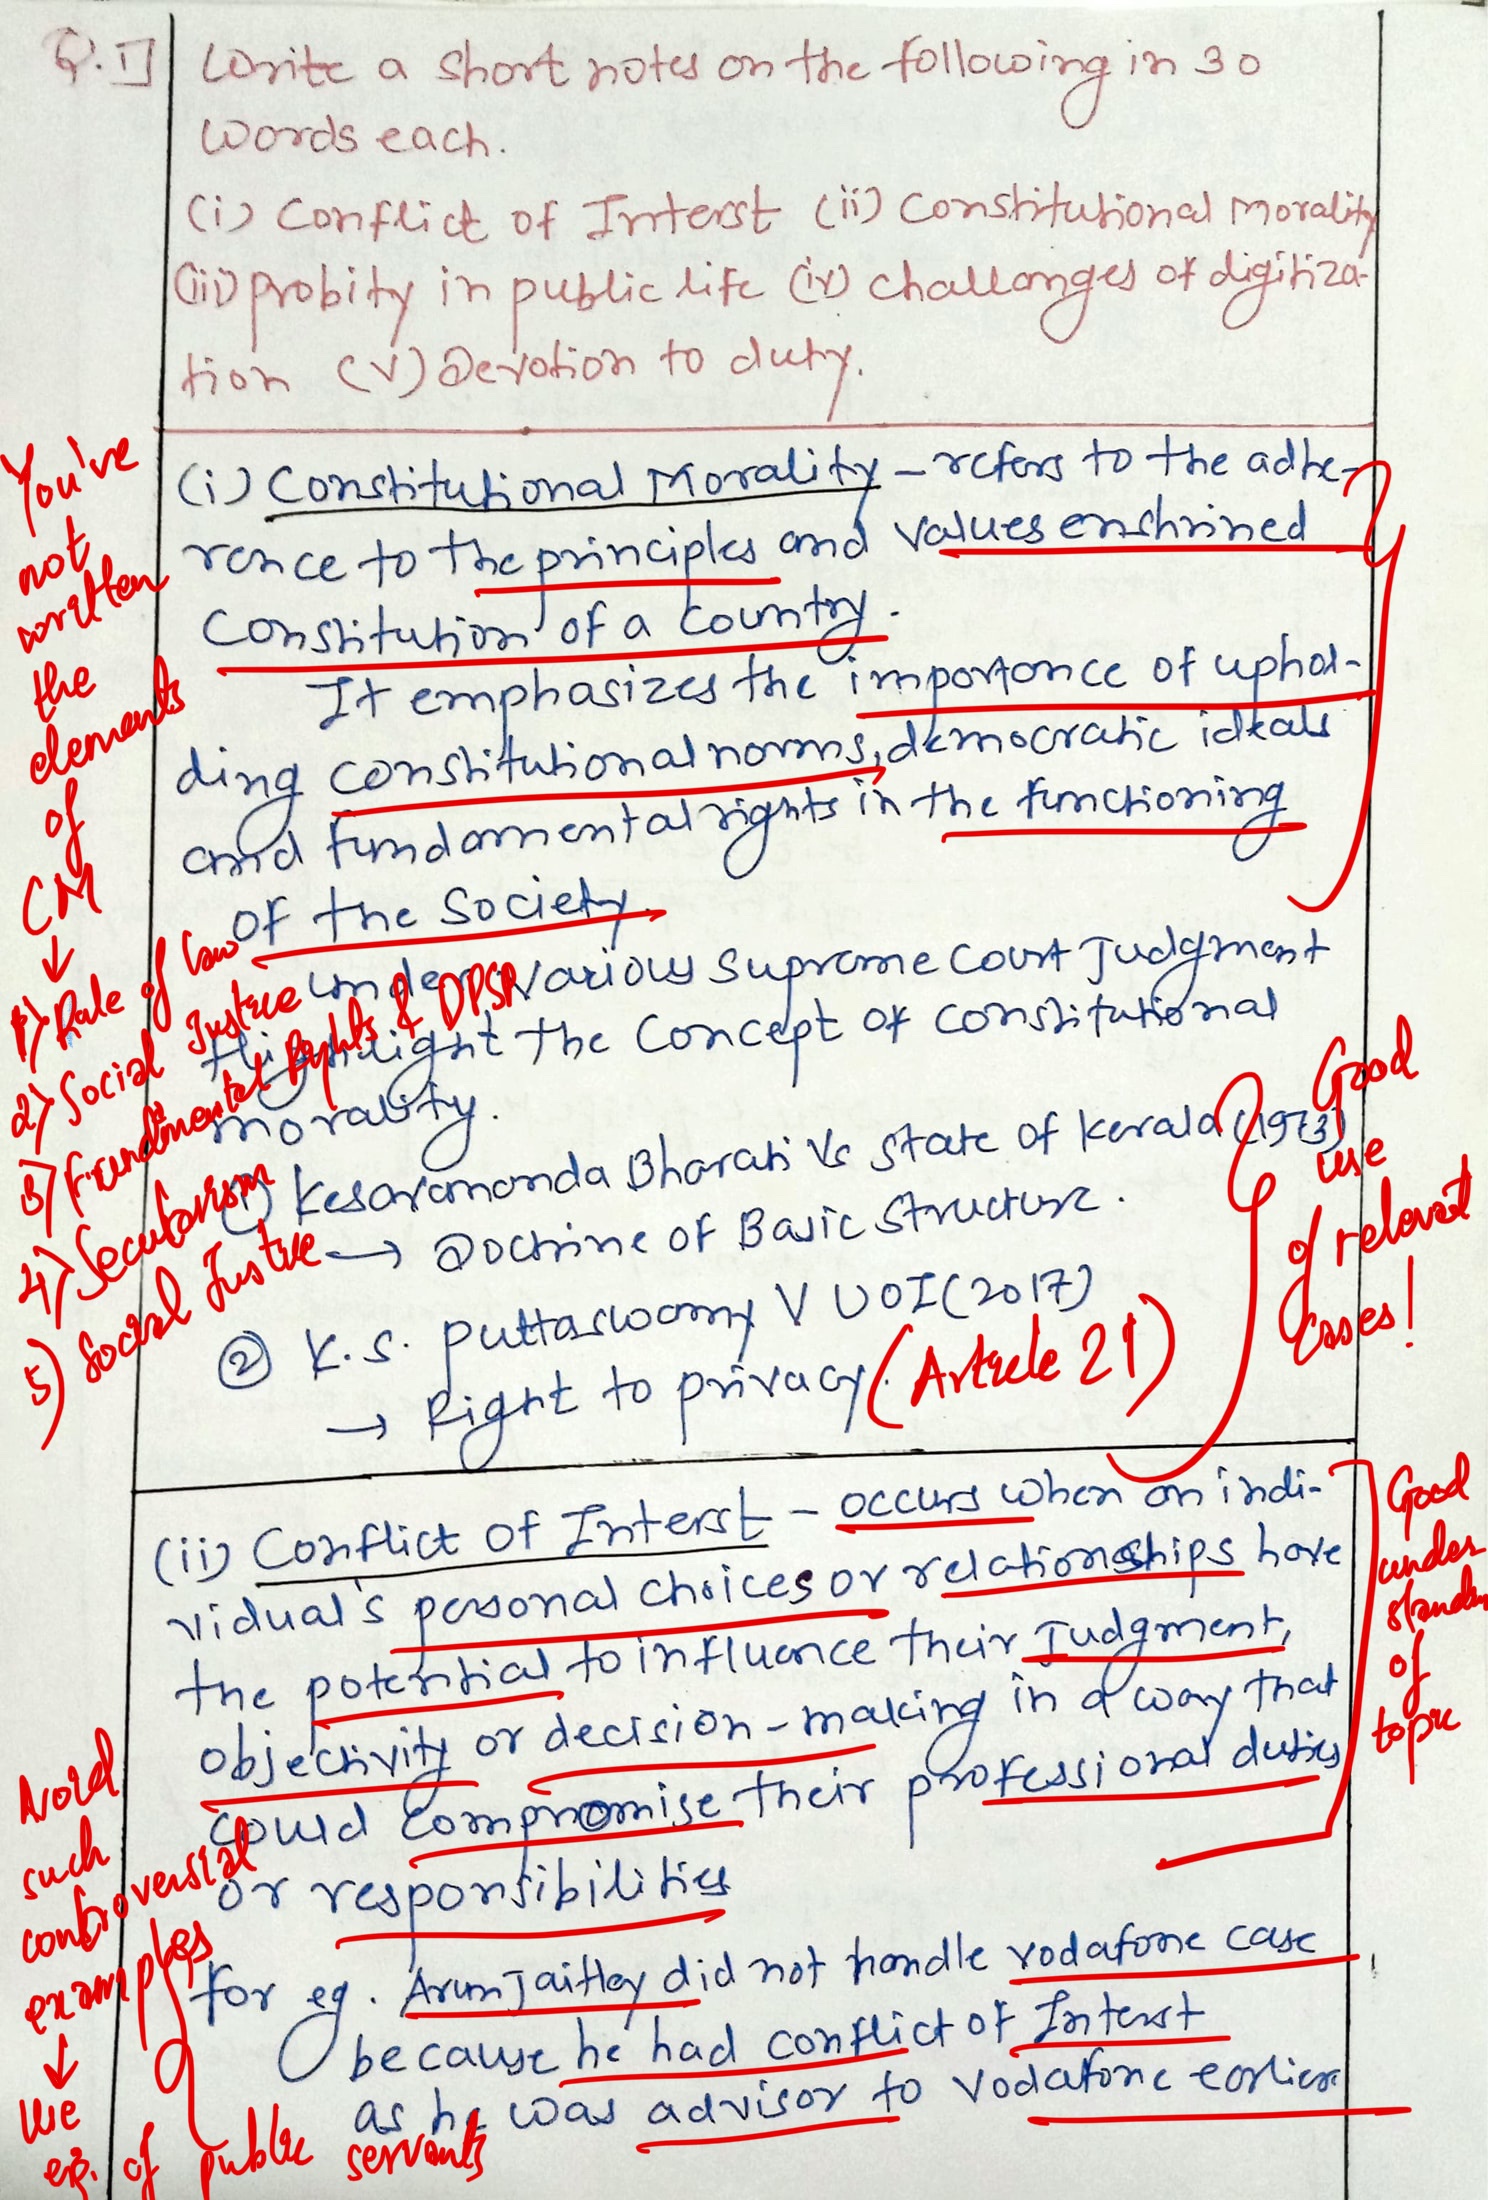 Q.1] Write a short notes on the following in 30
words each.
(i) Conflict of Interst (ii) Constitutional Morality
(iii) probity in public life (iv) challanges of digitiza-
tion (v) Devotion to duty.
(i) Constitutional Morality - refers to the adhe-
rence to the principles and values enshrined
Constitution of a Country.
It emphasizes the importance of uphol-
ding constitutional norms, democratic ideals
and fundamental rights in the functioning
of the Society.
Under various Supreme Court Judgment
Highlight the Concept of constitutional
morality.
(1) Kesavananda Bharati Vs State of Kerala (1973)
→ Doctrine of Basic Structure.
② K.S. Puttaswamy V UOI (2017)
→ Right to privacy. (Article 21)
(ii) Conflict of Interst - occurs when an indi-
vidual's personal choices or relationships have
the potential to influence their Judgment,
objectivity or decision-making in a way that
could compromise their professional duties
or responsibilities
For eg. Arun Jaitley did not handle vodafone case
because he had conflict of Interst
as he was advisor to vodafone earlier
You've
not
written
the
elements
of
CM
↓
1) Rule of law
2) Social Justice
3) Fundmental Rights & DPSP
4) Secularism
5) Social Justice
Good
use
of relevant
cases!
Good
under
standing
of
topic
Avoid
such
controversial
examples
↓
Use
eg. of public servants